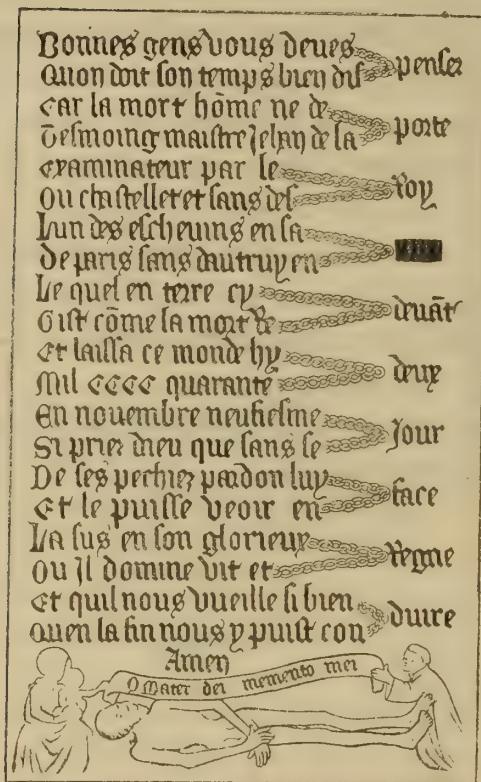 Bonnes gens vous deues
Quon doit son temps bien dis
penser
Car la mort hōme ne de
Tesmoing maistre Jehan de la
porte
examinateur par le
Ou chastellet et sans des
Roy
Lun des escheuins en sa
De paris sans dautruy en
Le quel en terre cy
Gist cōme la mort Re
deuāt
Et laissa ce monde hy
Mil cccc quarante
deux
En nouembre neufiesme
Si priez dieu que sans se
Jour
De ses pechiez pardon luy
Et le puisse veoir en
face
La sus en son glorieux
Ou Il domine vit et
Regne
Et quil nous vueille si bien
Quen la fin nous y puist con
duire
Amen
O Mater dei memento mei